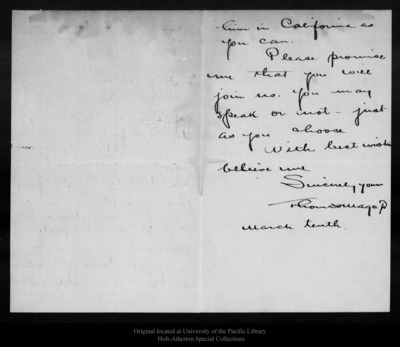 him in California as
you can.
Please promise
me that you will
join us. You may
speak or not - just
as you choose
With best wish
believe me
Sincerely your
Thomas Magee
March tenth.
Original located at University of the Pacific Library
Holt-Atherton Special Collections